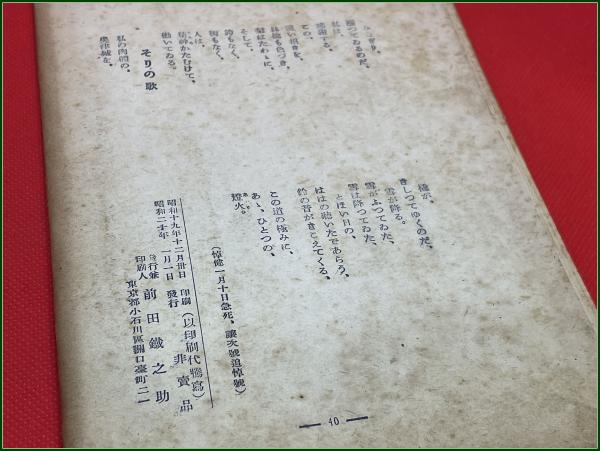 私は、
感謝する。
この、
そして、
鈴もなく、
街もなく、
人は、
精神かたむけて、
働いてゐる。
そりの歌
私の肉體の、
奥津城を、
橇が、
きしつてゆくのだ、
雪が降る。
雪がふつてゐた、
雪は降つてゐた、
とほい日の、
ははの聴いたであらう、
鈴の音がきこえてくる、
この道の極みに、
あゝ、ひとつの、
燈火。
(悼健一月十日急死、讓次號追悼號)
昭和十九年十二月卅日 印刷 (以印刷代謄寫)
昭和二十年一月一日 發行 非賣品
發行兼印刷人 前田鐵之助
東京都小石川區關口臺町二一
— 40 —